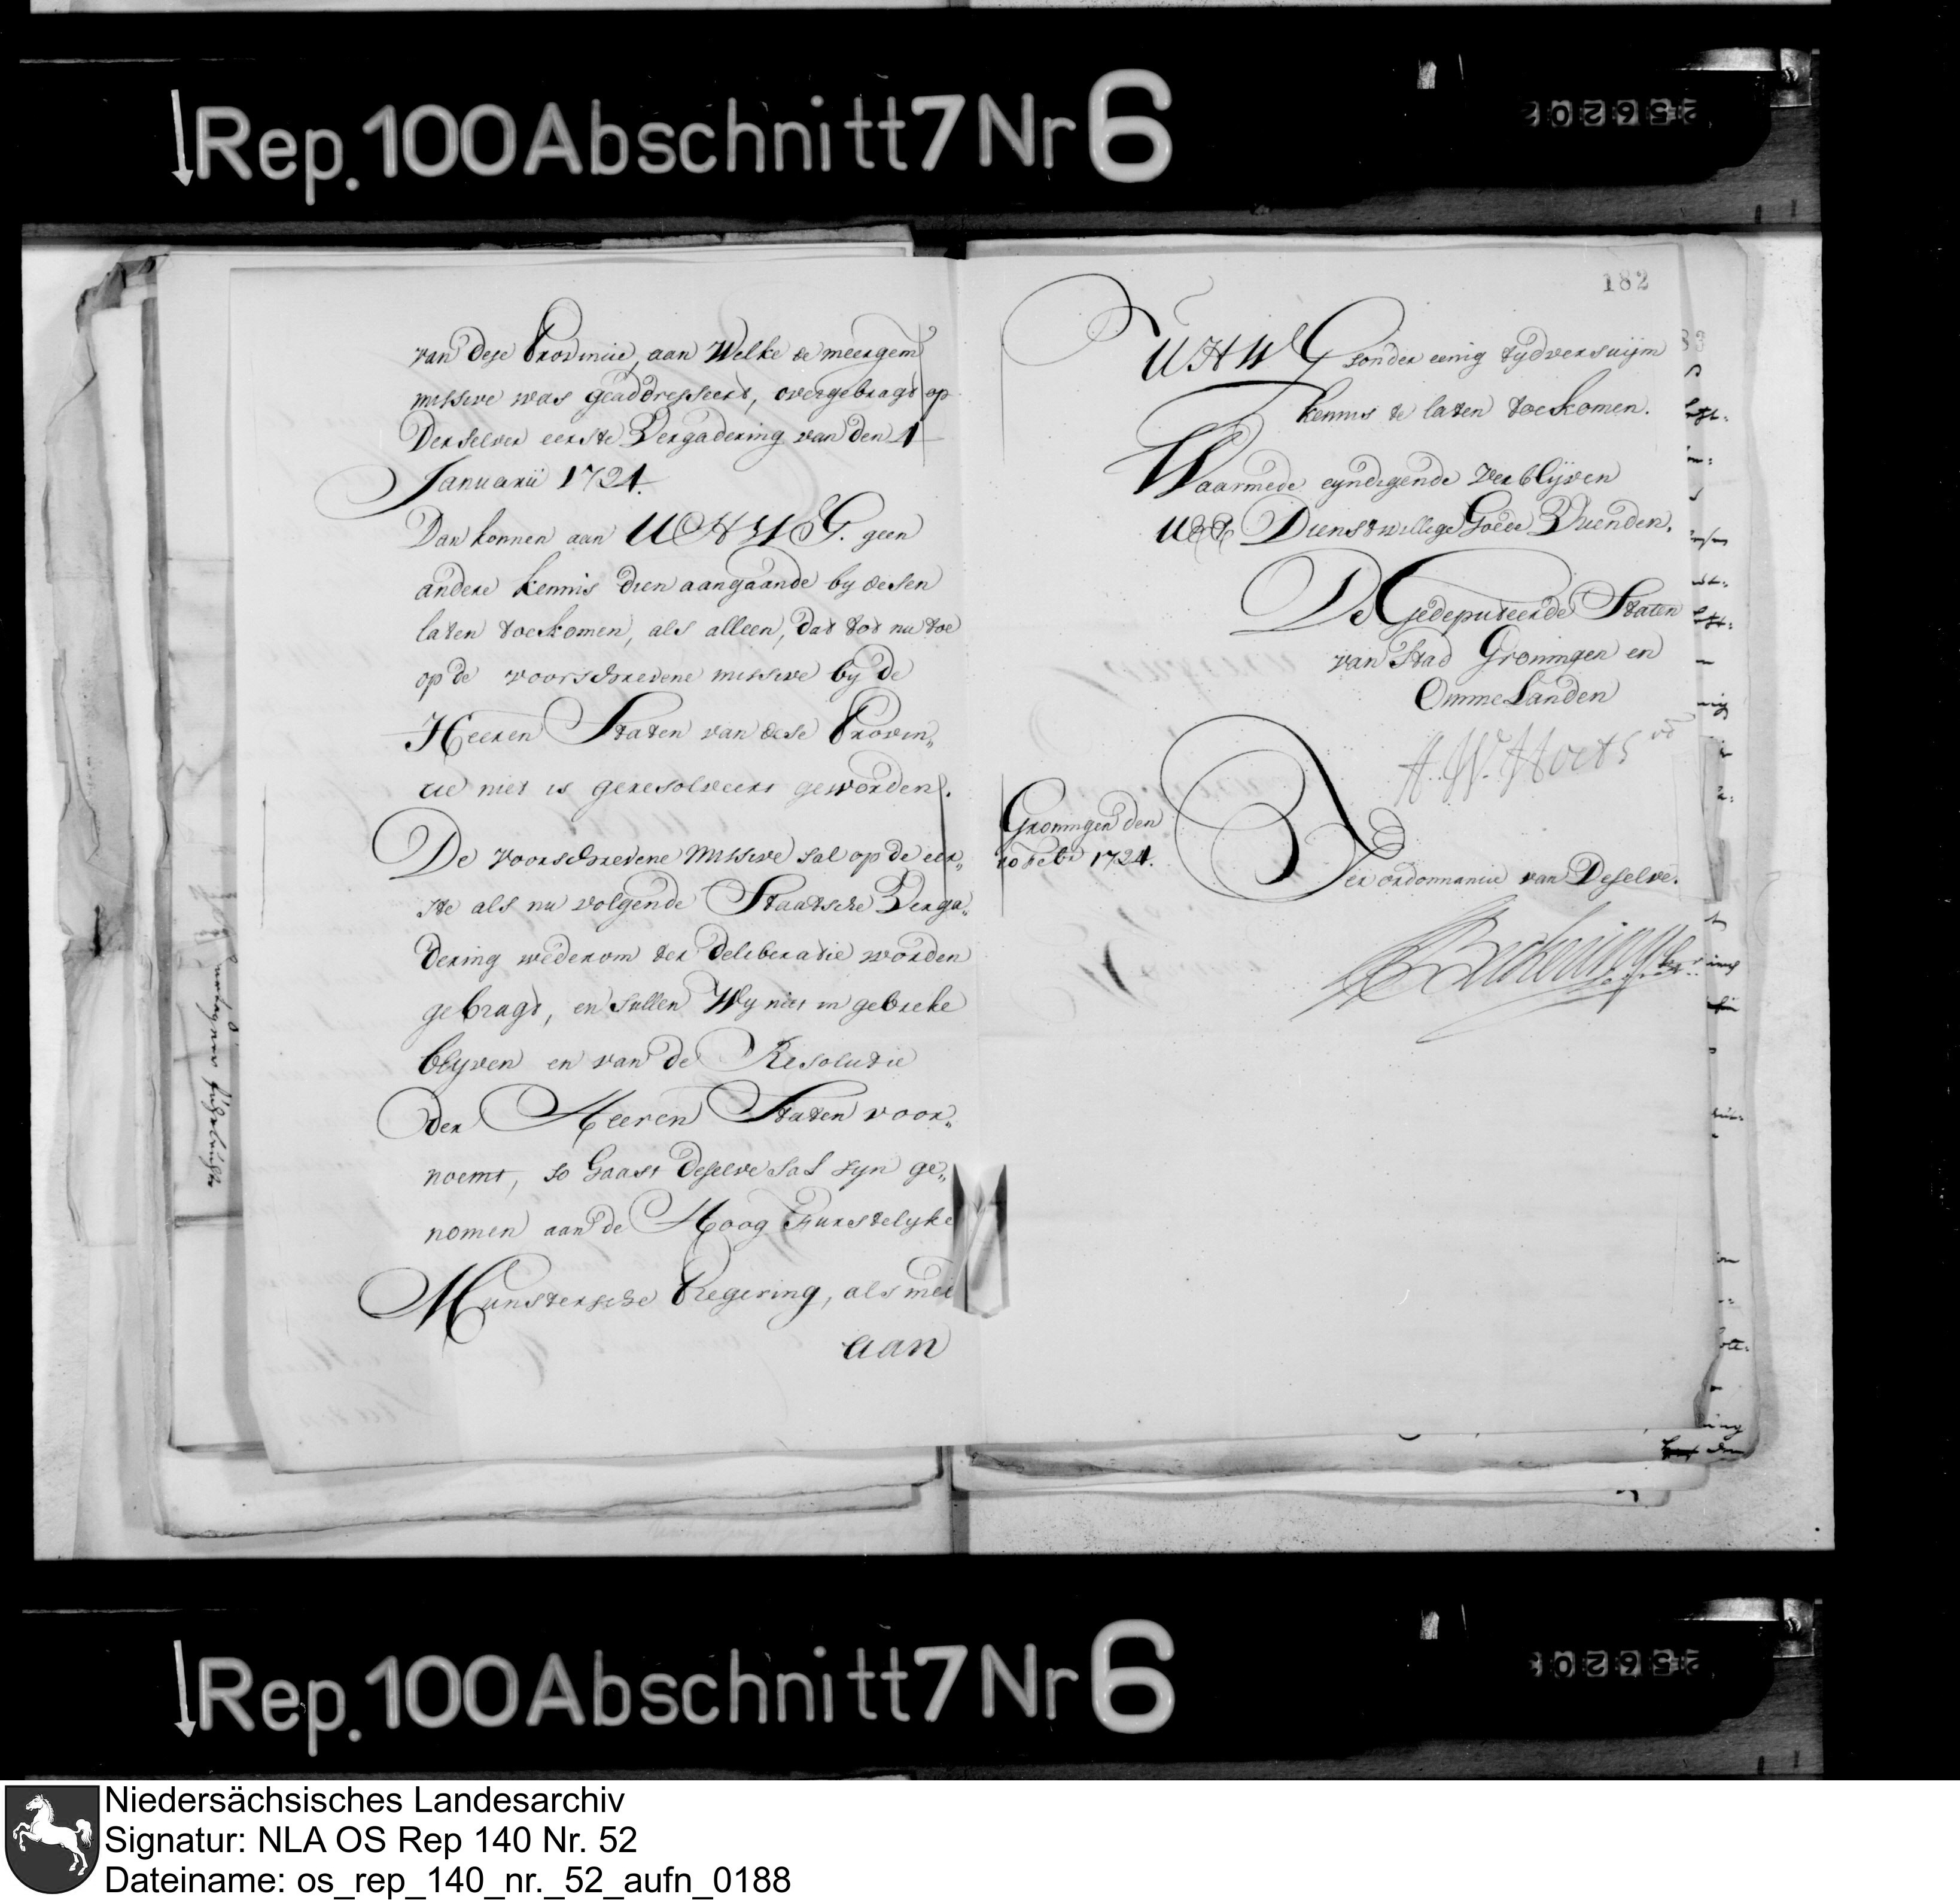 Rep. 100 Abschnitt 7 Nr 6
van dese Provincie, aan Welke de meergem
missive was geaddresseert, overgebragt op
Derselver eerste Vergadering van den 1
Januarii 1724.
Dan konnen aan UHWG. geen
andere kennis dien aangaande by desen
laten toekomen, als alleen, dat tot nu toe
op de voorschrevene missive by de
Heeren Staten van dese Provin„
cie niet is geresolveert geworden.
De voorschrevene Missive sal op de eer„
ste als nu volgende Staatsche Verga„
dering wederom ter deliberatie worden
gebragt, en sullen Wy niet in gebreke
blyven en van de Resolutie
der Heeren Staten voor„
noemt, so haast deselve sal syn ge„
nomen aan de Hoog Furstelyke
Munstersche Regering, als mede
aan
182
UHWG sonder eenig tydversuijm
kennis te laten toekomen.
Waarmede eyndigende Verblijven
Dienstwillige Goede Vrienden.
De Gedeputeerde Staten
van Stad Groningen en
OmmeLanden
Groningen den
10 Feb: 1724.
Ter ordonnancie van Deselve.
Rep. 100 Abschnitt 7 Nr 6
Niedersächsisches Landesarchiv
Signatur: NLA OS Rep 140 Nr. 52
Dateiname: os_rep_140_nr._52_aufn_0188